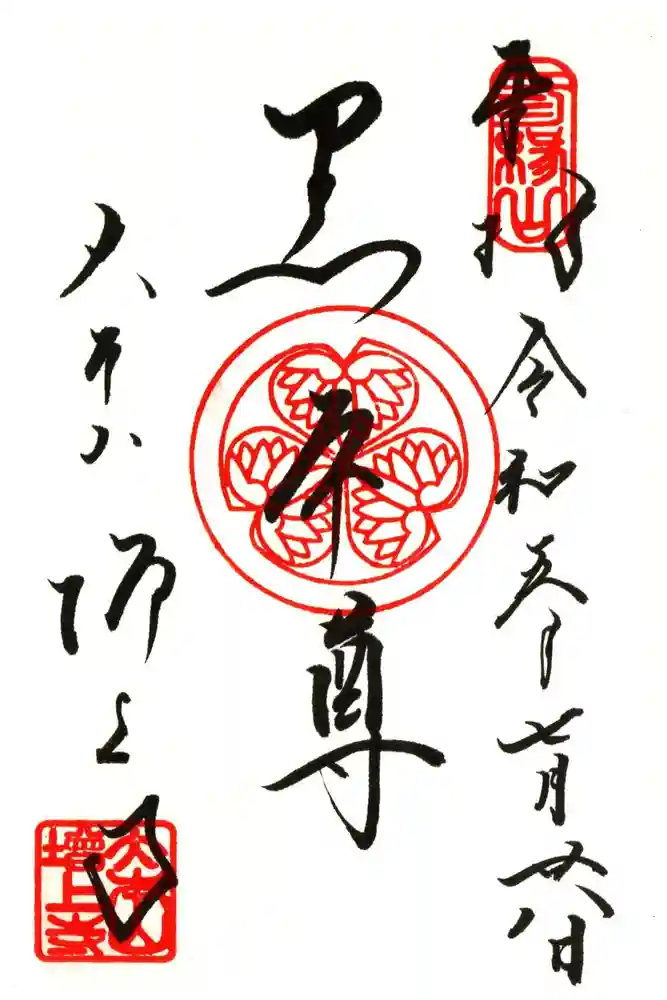 奉拝
三縁山
令和五年七月廿八日
黒本尊
大本山 増上寺
大本山
増上寺